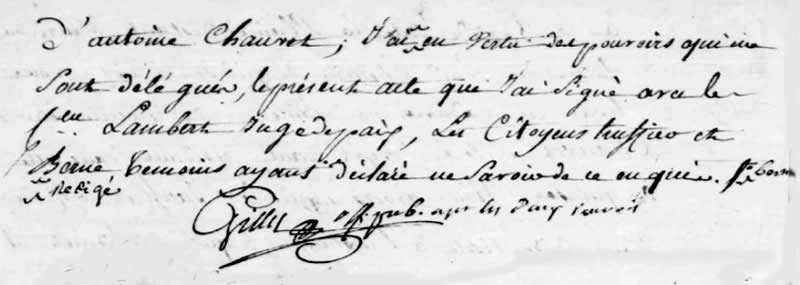 d'antoine Chauvet; J'ai en vertu des pouvoirs qui me
sont délégués, le présent acte que J'ai Signé avec le
Cen Lambert Juge de paix, Les Citoyens truffier et
Berne, temoins ayans declaré ne Savoir de ce enquis.
redigé
Gillet off. pub.